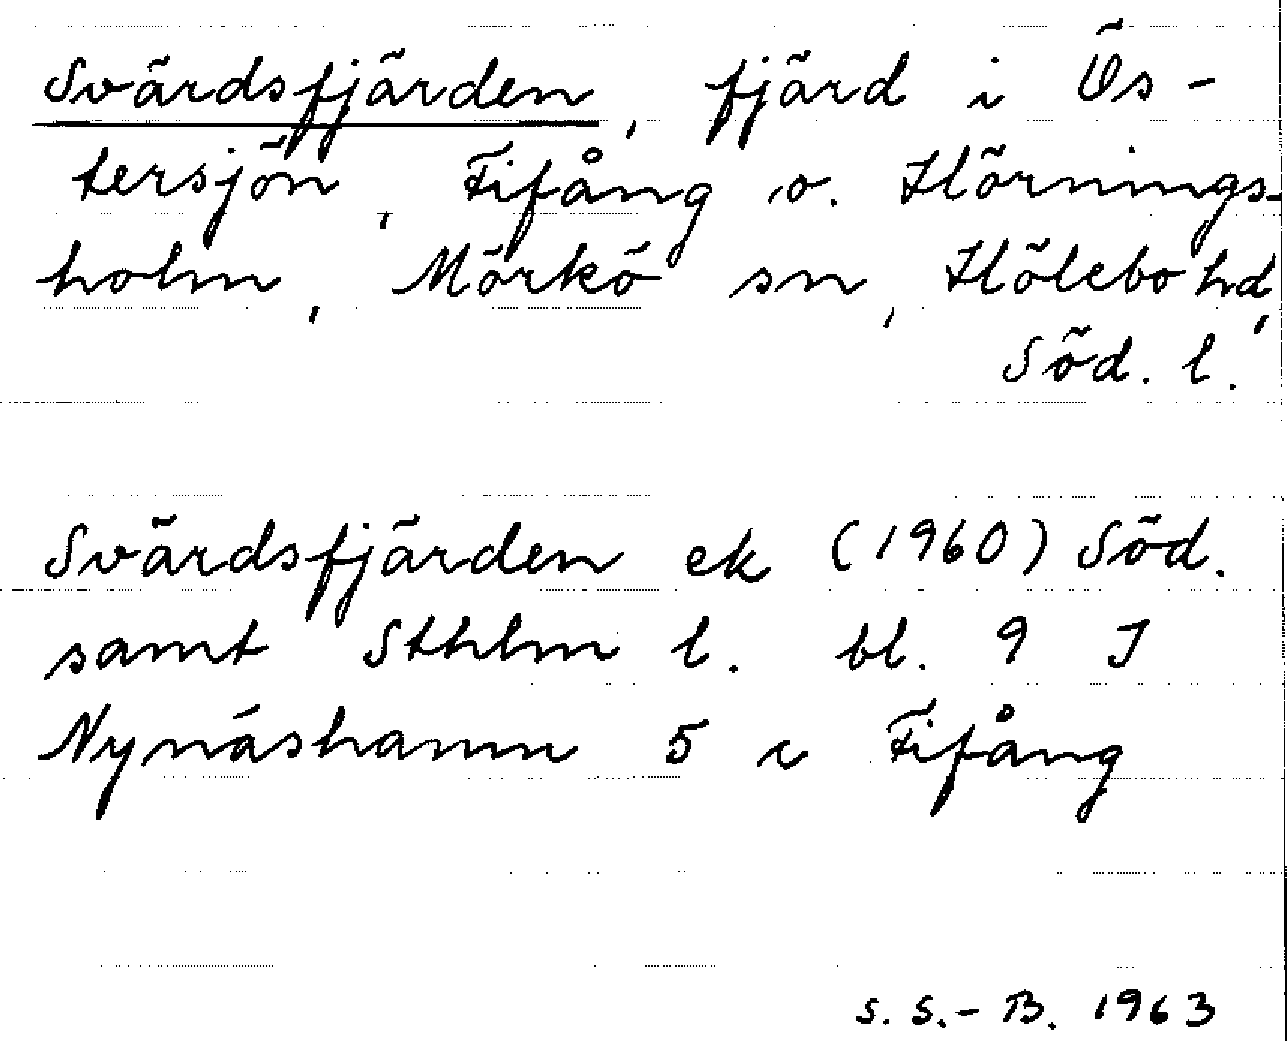 Svärdsfjärden, fjärd i Ös-
tersjön, Fifång o. Hörnings-
holm, Mörkö sn, Hölebo hd,
Söd. l.
Svärdsfjärden ek (1960) Söd.
samt Sthlm l. bl. 9 I
Nynäshamn 5 c Fifång
S. S.-B. 1963